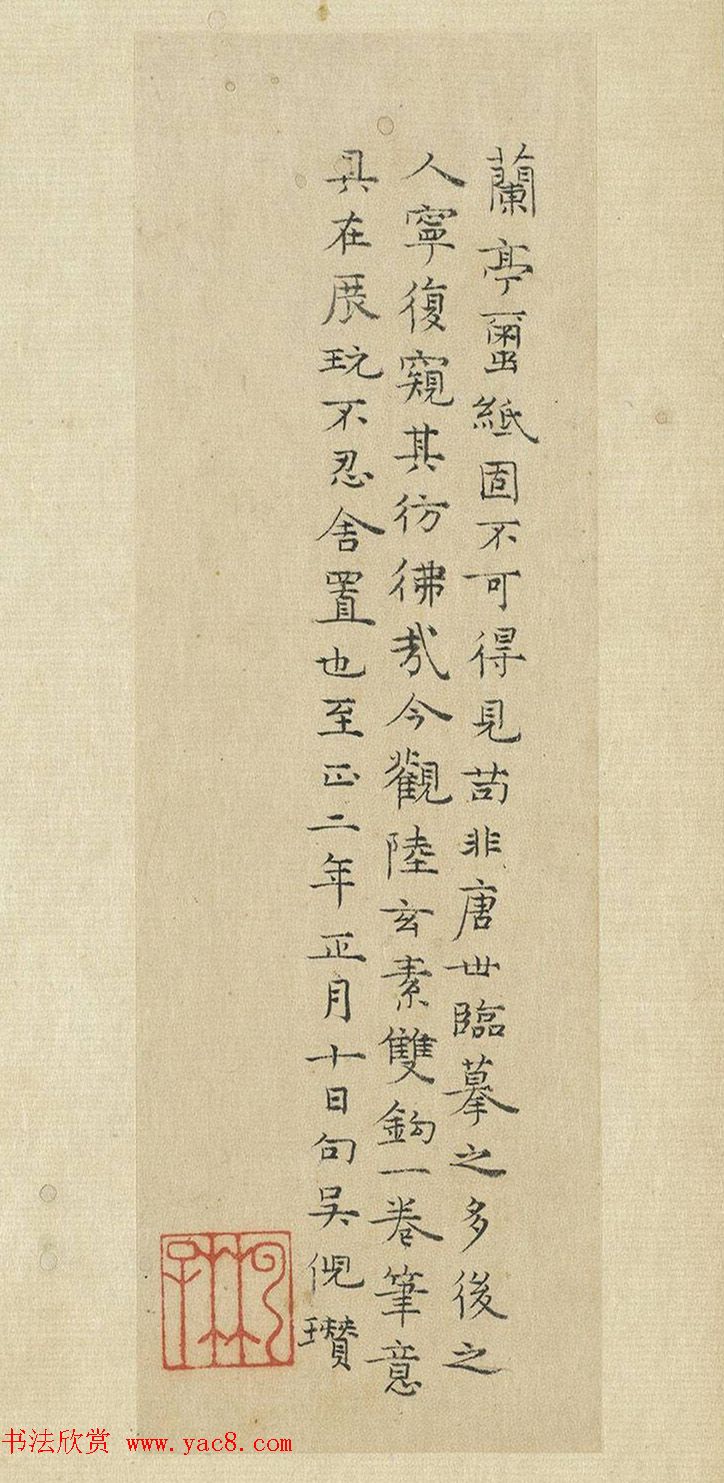 蘭亭璽紙固不可得見苟非唐世臨摹之多後之
人寧復窺其彷彿㢤今觀陸玄素雙鈎一卷筆意
具在展玩不忍舍置也至正二年正月十日句吴倪瓚
书法欣赏 www.yac8.com